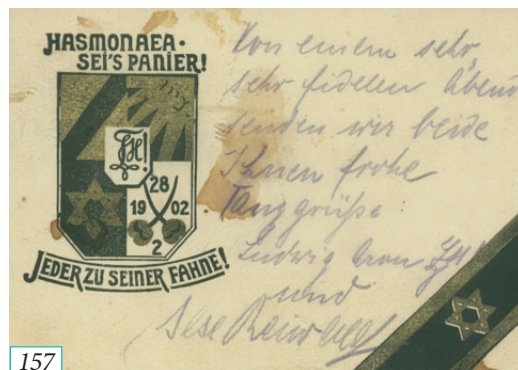 HASMONAEA·
SEI'S PANIER!
28
19 02
2
JEDER ZU SEINER FAHNE!
Von einem sehr,
sehr fidelen Abend
senden wir beide
Ihnen frohe
Tanzgrüße:
Ludwig
und
157